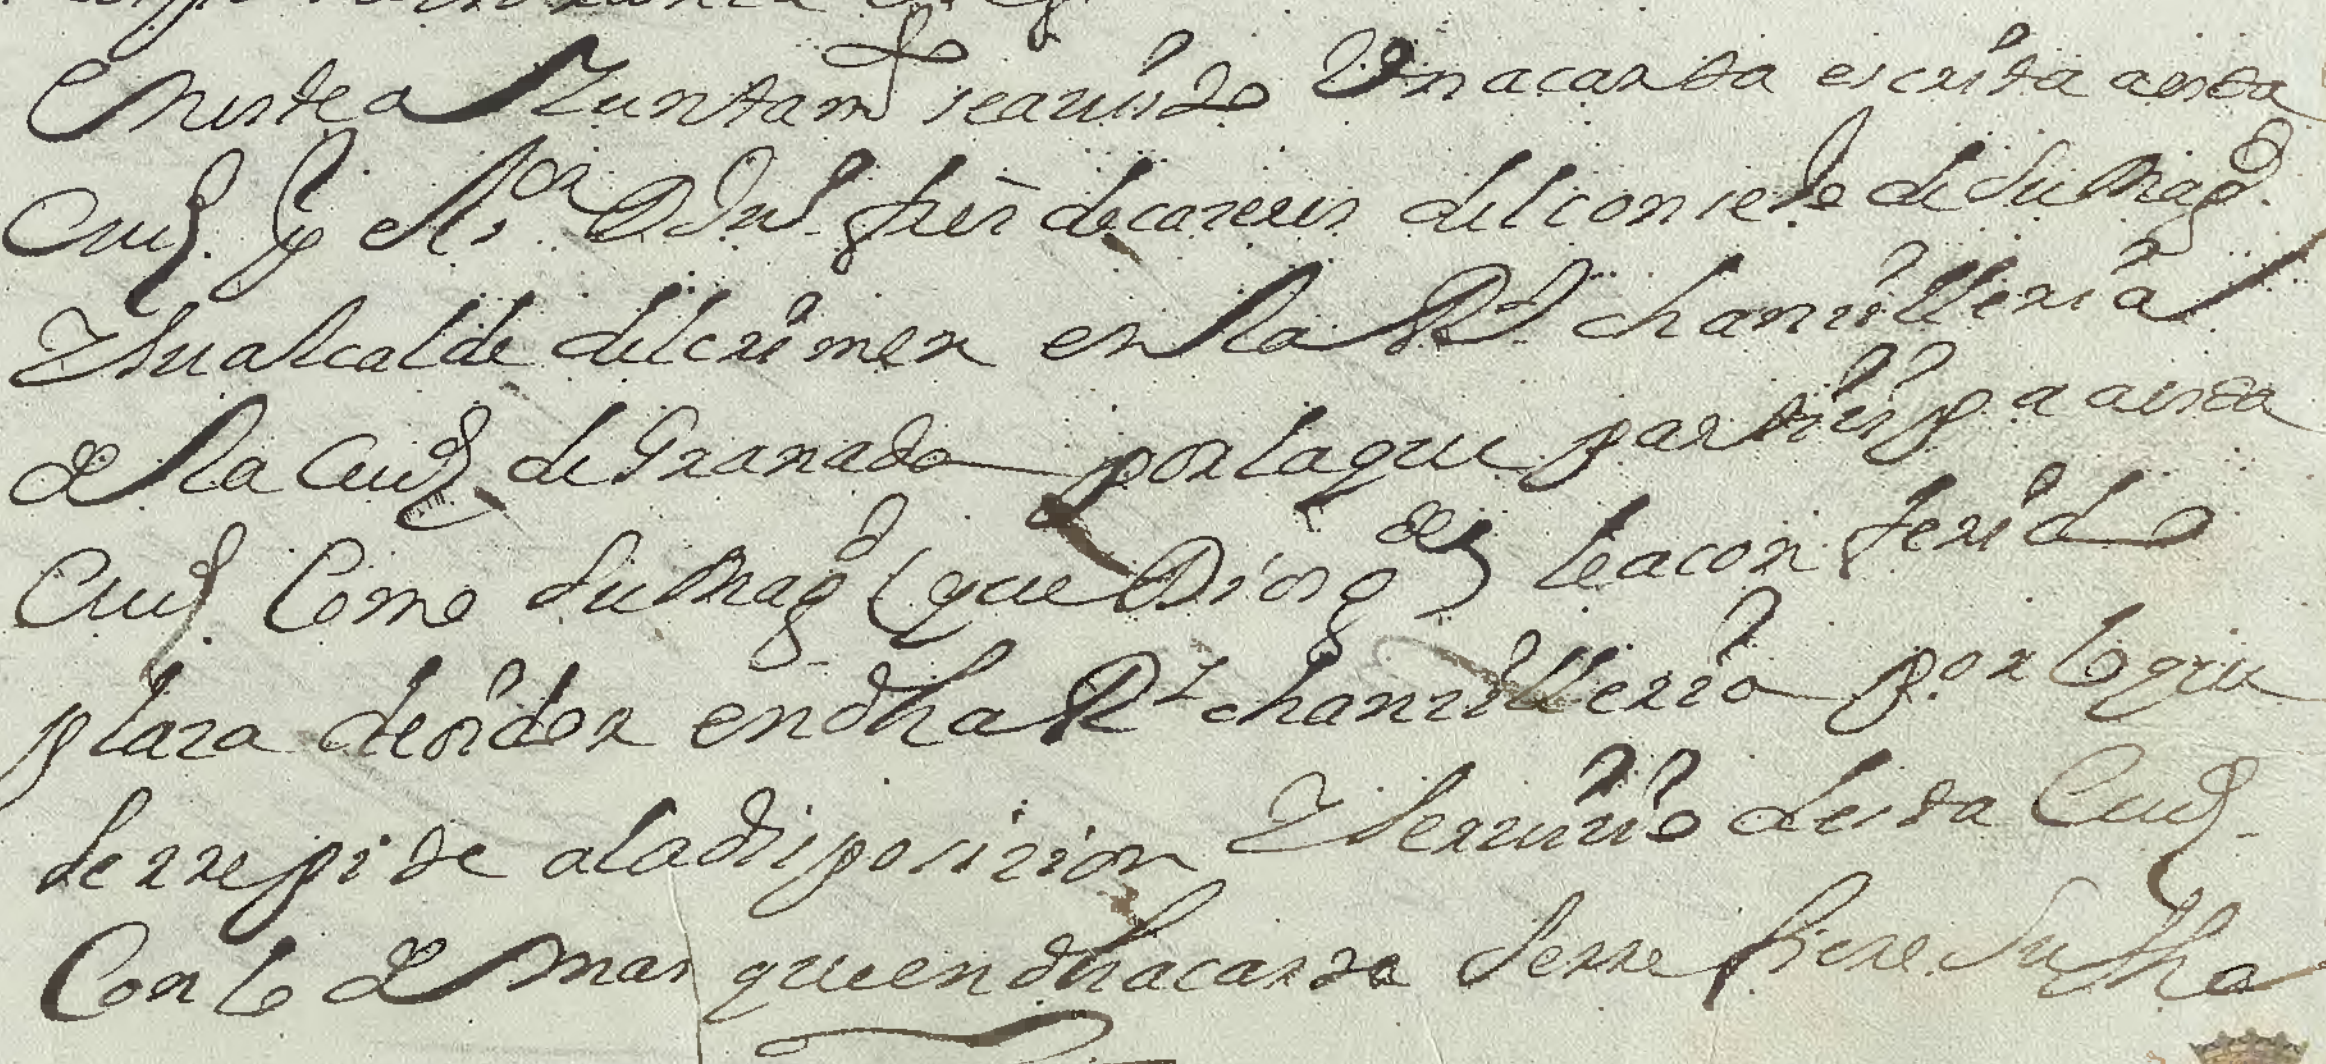 En este a Yuntam.to se a visto Vna carta escrita a esta
Ciud. p.r el s.or D. Ju.o fran.co de carever del consejo de su Mag.d
Y su alcalde del crimen en la R.l chanzilleria
de la Ciud. de Granada por la que partizipa a esta
Ciud. Como su Mag.d (que Dios g.de) le a conferido
plaza de oidor en dha R.l chanzilleria por lo que
se rrepite a la disposizion Y servizio de esta Ciud.
Con lo demas que en dha carta se rrefiere su fha